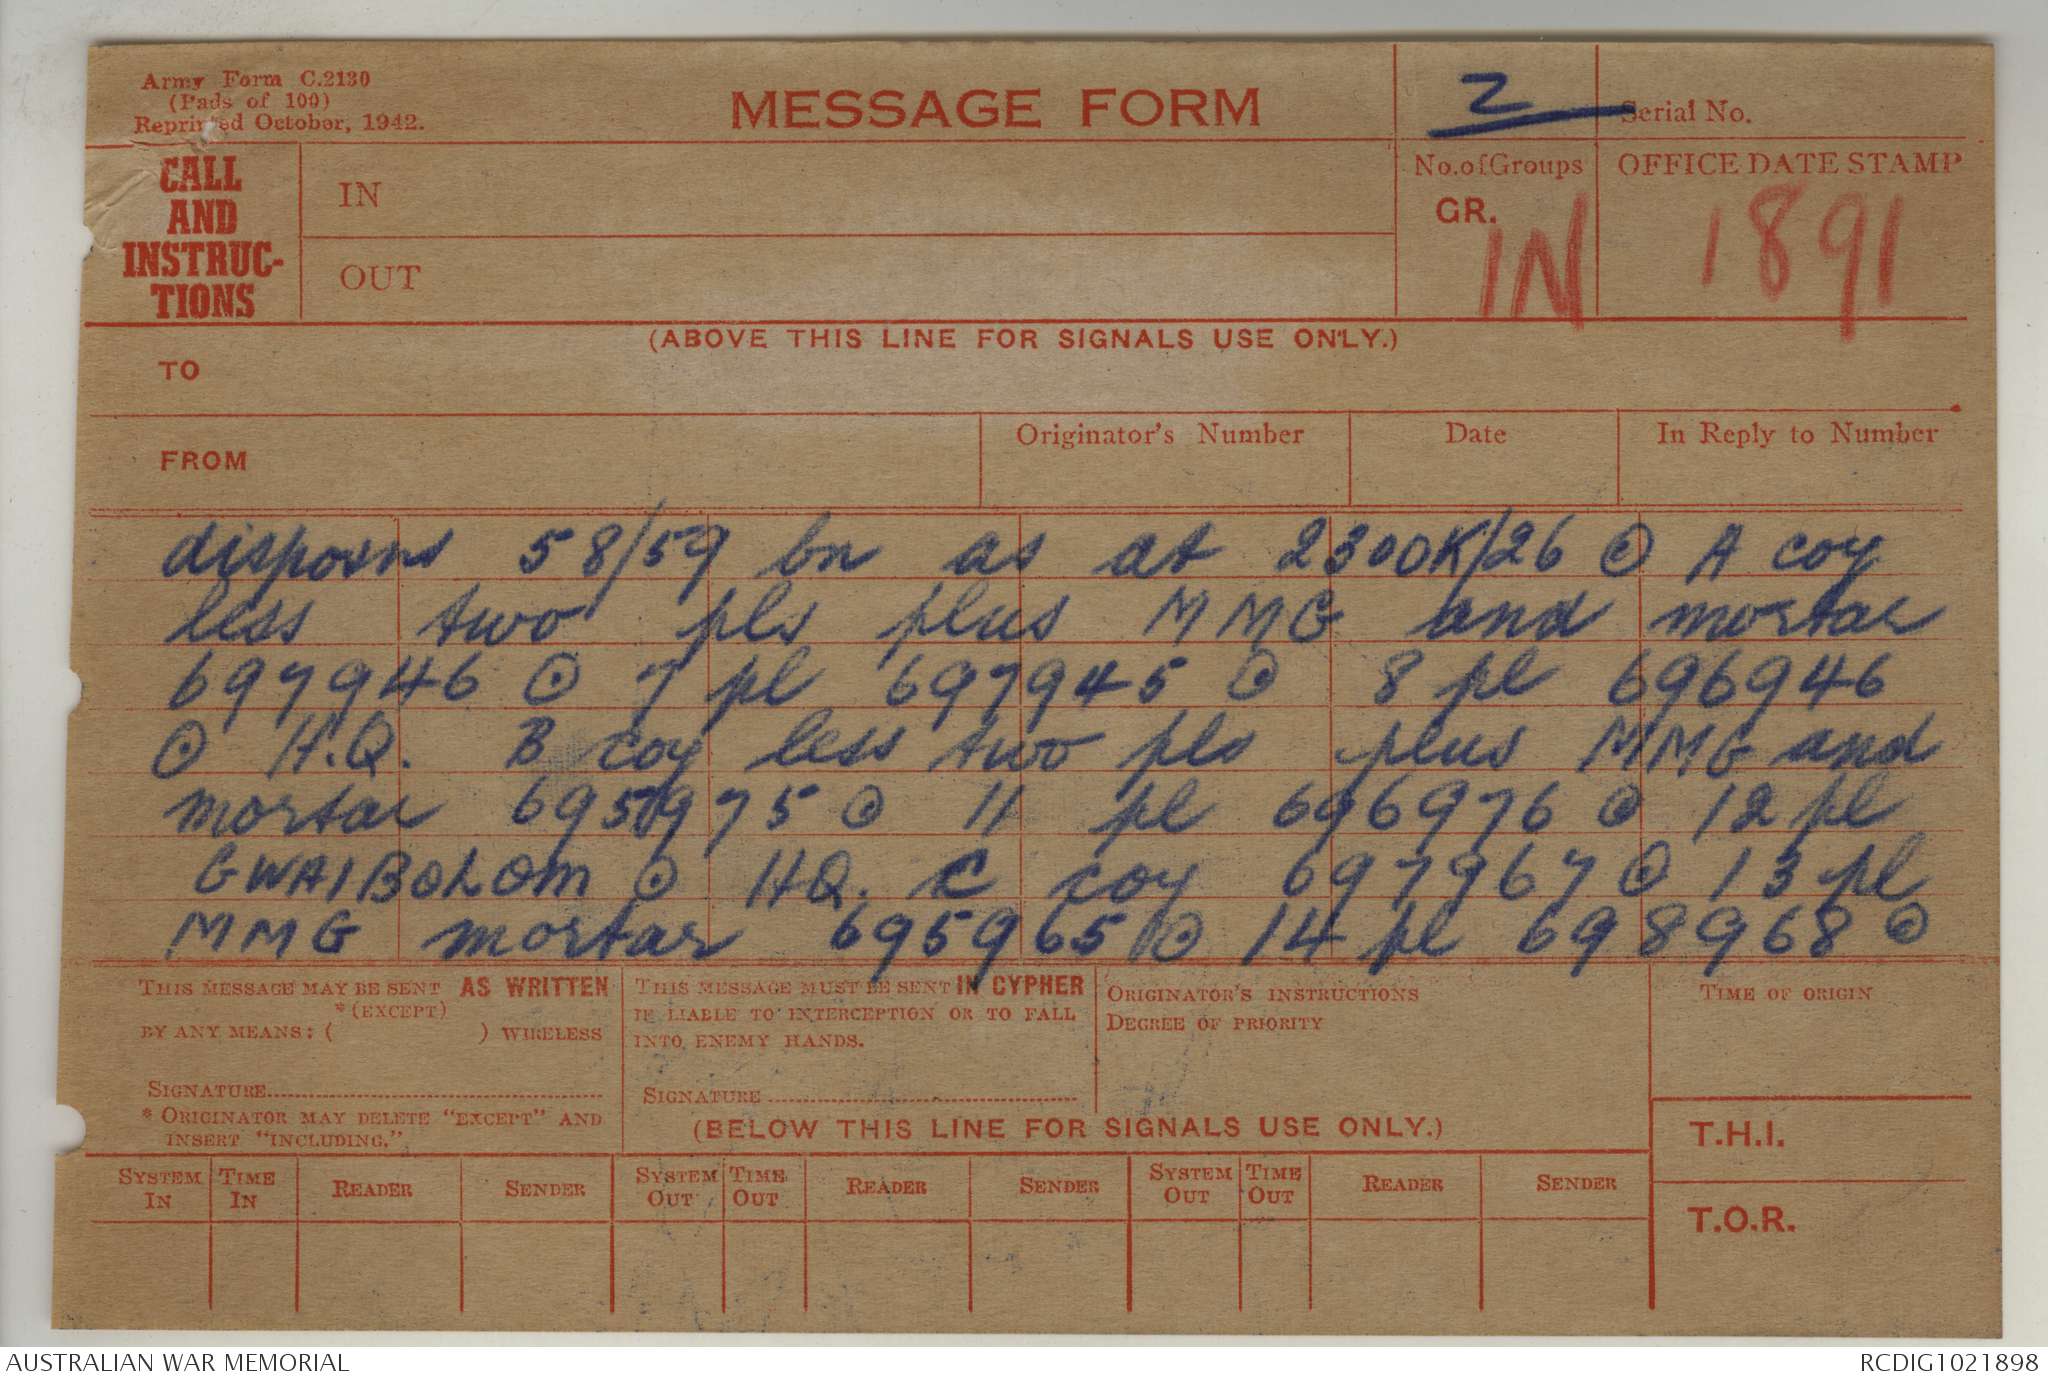 Army Form C.2130
(Pads of 100)
Reprinted October, 1942.
MESSAGE FORM
2
Serial No.
CALL AND INSTRUC-TIONS
IN
OUT
No. of Groups
GR.
IN
OFFICE DATE STAMP
1891
(ABOVE THIS LINE FOR SIGNALS USE ONLY.)
TO
FROM
Originator's Number
Date
In Reply to Number
disposns 58/59 bn as at 2300K/26 ⊙ A coy
less two pls plus MMG and mortar
697946 ⊙ 7 pl 697945 ⊙ 8 pl 696946
⊙ H.Q. B coy less two pls plus MMG and
mortar 695975 ⊙ 11 pl 696976 ⊙ 12 pl
GWAIBOLOM ⊙ HQ. C coy 697967 ⊙ 13 pl
MMG mortar 695965 ⊙ 14 pl 698968 ⊙
THIS MESSAGE MAY BE SENT AS WRITTEN
*(EXCEPT)
BY ANY MEANS: ( ) WIRELESS
SIGNATURE
* ORIGINATOR MAY DELETE "EXCEPT" AND
INSERT "INCLUDING."
THIS MESSAGE MUST BE SENT IN CYPHER
IF LIABLE TO INTERCEPTION OR TO FALL
INTO ENEMY HANDS.
SIGNATURE
ORIGINATOR'S INSTRUCTIONS
DEGREE OF PRIORITY
TIME OF ORIGIN
(BELOW THIS LINE FOR SIGNALS USE ONLY.)
T.H.I.
T.O.R.
SYSTEM IN
TIME IN
READER
SENDER
SYSTEM OUT
TIME OUT
READER
SENDER
SYSTEM OUT
TIME OUT
READER
SENDER
AUSTRALIAN WAR MEMORIAL
RCDIG1021898